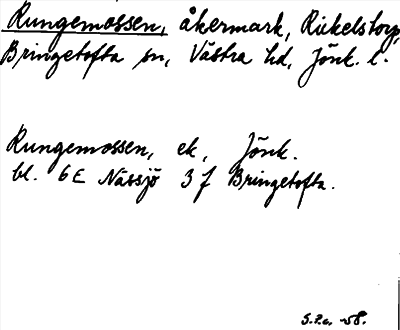 Rungemossen, åkermark, Rickelstorp,
Bringetofta sn, Västra hd, Jönk. l.
Rungemossen, ek, Jönk.
bl. 6E Nässjö 3 f Bringetofta.
-58.